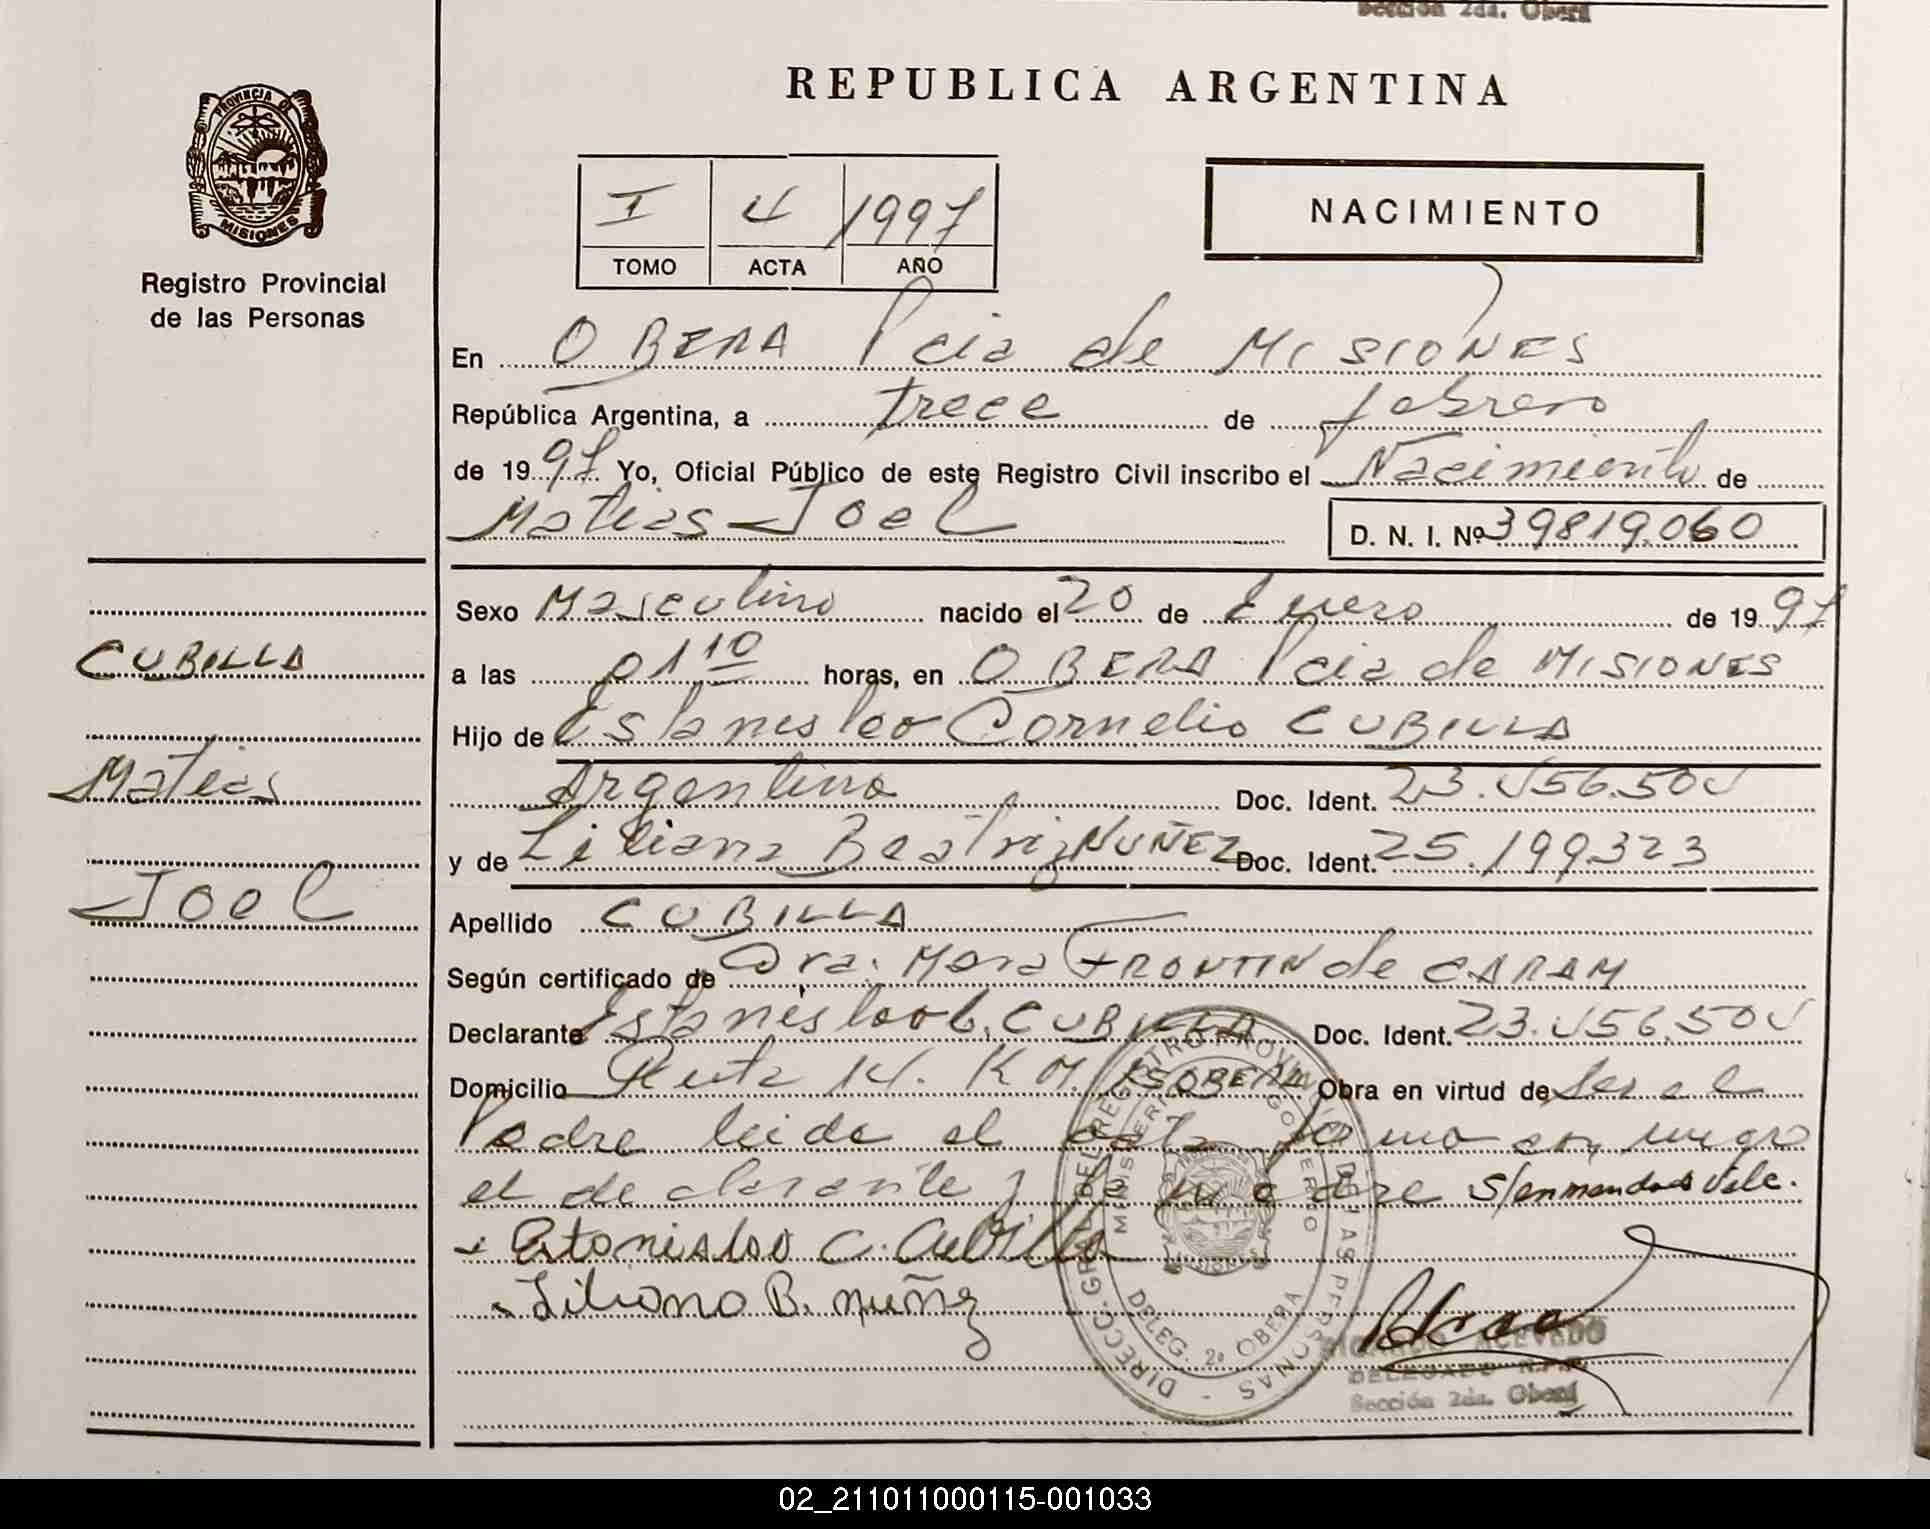 Sección 2da. Oberá
REPUBLICA ARGENTINA
PROVINCIA DE
MISIONES
Registro Provincial
de las Personas
I 4 1997
TOMO ACTA AÑO
NACIMIENTO
En OBERA Pcia de MISIONES
República Argentina, a trece de febrero
de 1997 Yo, Oficial Público de este Registro Civil inscribo el Nacimiento de
Matias Joel
D. N. I. Nº 39819.060
Sexo Masculino nacido el 20 de Enero de 1997
a las 01 10 horas, en OBERA Pcia de MISIONES
Hijo de Estanislao Cornelio CUBILLA
Argentino Doc. Ident. 23.456.504
y de Liliana Beatriz NUÑEZ Doc. Ident. 25.199323
Apellido CUBILLA
Según certificado de Dra. Mara FRONTIN de CARAM
Declarante Estanislao C. CUBILLA Doc. Ident. 23.456.504
Domicilio Ruta 14. KM. OBERA Obra en virtud de ser el
Padre leida el acta firma con migo
el declarante y la madre s/enmendado Vale.
Estanislao C. Cubilla
Liliana B. nuñez
CUBILLA
Matias
Joel
DIRECC. GRAL DEL REGISTRO PROVINCIAL DE LAS PERSONAS
MINISTERIO GOBIERNO
DELEG. 2a OBERA
ACEVEDO
DELEGADO
Sección 2da. Oberá
02_211011000115-001033